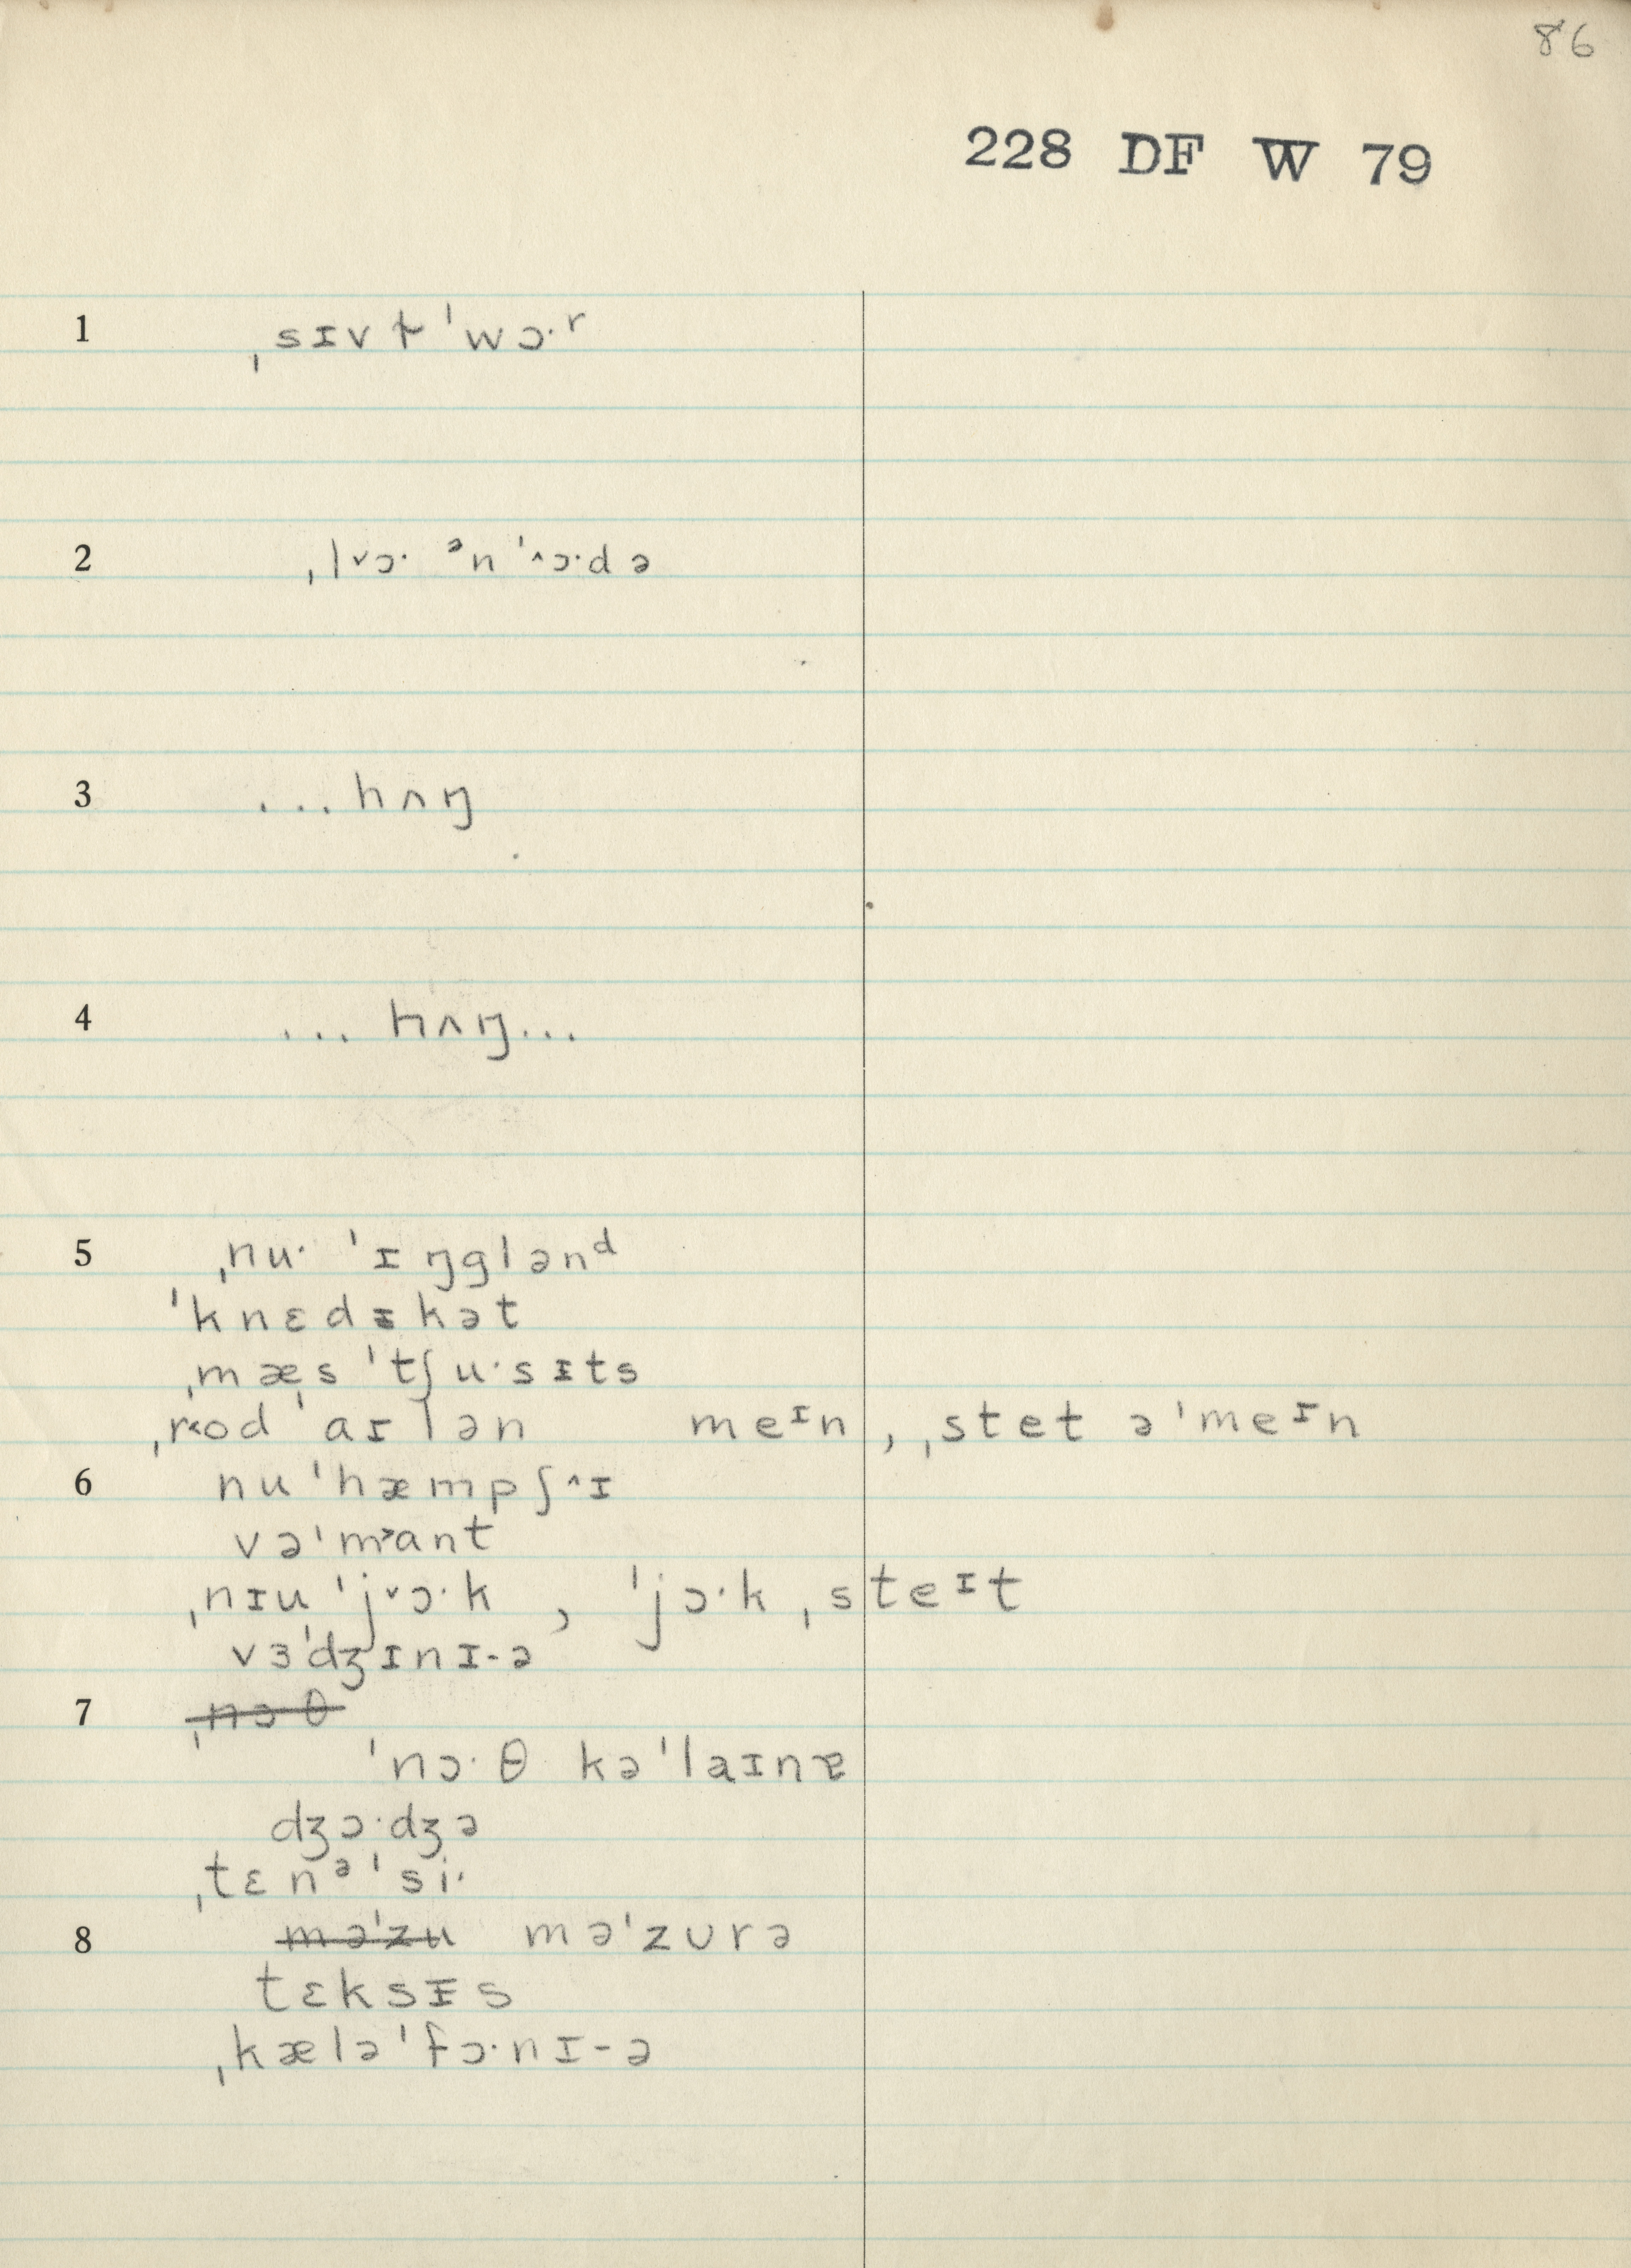 86
228 DF W 79
1 ˌsɪvɫ ˈwɔ·ʳ
2 ˌl˅ɔ· ᵊn ˈ˄ɔ·də
3 ...hʌŋ
4 ... hʌŋ...
5 ˌnu· ˈɪŋglənᵈ
ˈknɛdɪkət
ˌmæsˈtʃu·sɪts
ˌr˂od ˈaɪlən meᶦn, ˌstet əˈmeᶦn
6 nuˈhæmpʃ˄ɪ
vəˈm˃ant
ˌnɪuˈj˅ɔ·k, ˈjɔ·k ˌsteᶦt
vɜˈdʒɪnɪ-ə
7 ˌnɔθ
ˈnɔ·θ kəˈlaɪnɐ
dʒɔ·dʒə
ˌtɛnᵊˈsi·
8 məˈzu məˈzʊrə
tɛksɪs
ˌkæləˈfɔ·nɪ-ə